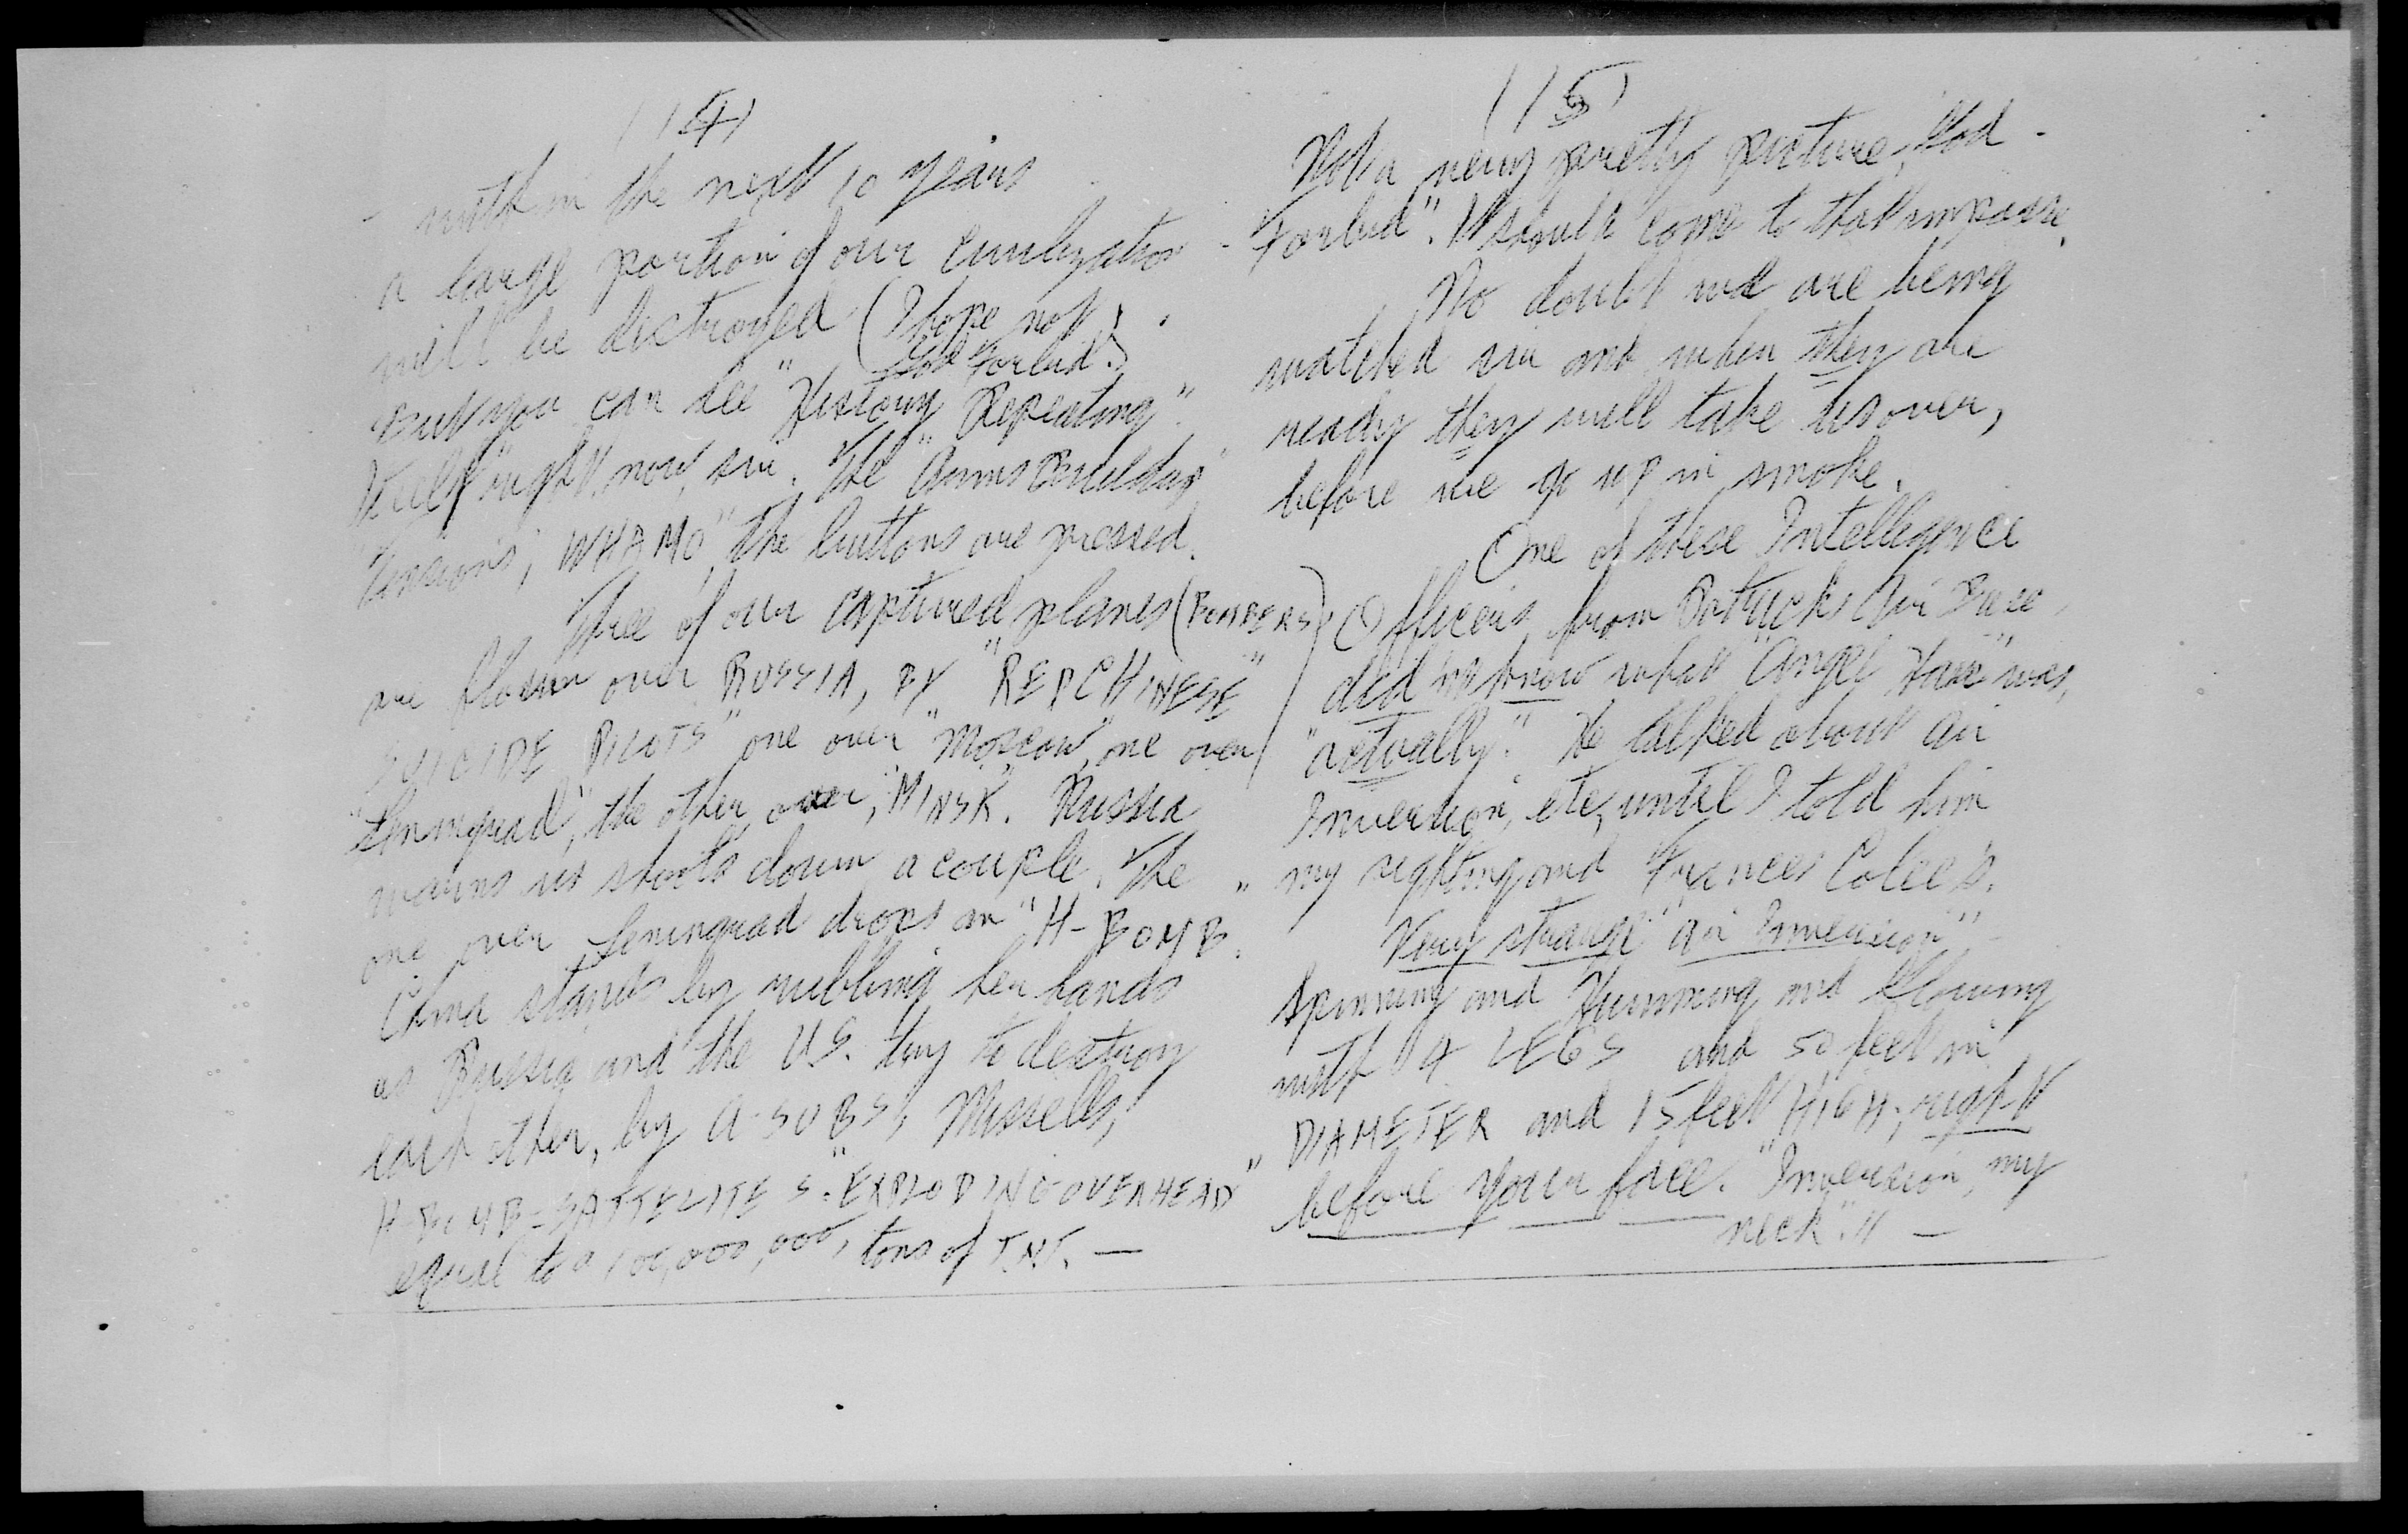 (14)
- within the next 10 years
a large portion of our civilization
will be distroyed (I hope not,
God Forbid.)
But you can see "History Repeating".
itself "right now, sir. The "Arms Building"
Tensions, "WHAMO", the buttons are pressed.
Three of our captured planes (BOMBERS)
are flown over RUSSIA, BY "RED CHINESE"
SUICIDE PILOTS" one over "Moscow, one over
"Leningrad", the other over, "MINSK. Russia
warns us shoots down a couple. The
one over Leningrad drops an "H-BOMB.
China stands by rubbing her hands
as Russia and the U.S. try to destroy
each other, by A-SUBS, Missells,
H-BOMB-SATTELITES. "EXPLODING OVERHEAD"
equal to a 100,000,000, tons of T.N.T. —
(15)
Not a very pretty picture, God -
Forbid". It should come to that impasse.
No doubt we are being
watched sir and when they are
ready they will take us over,
before we go up in smoke.
One of these Intelligence
Officers from Air Base,
did not know what "Angel Hair" was,
"actually." He talked about air
Inversion, etc, until I told him
my sighting and Frances
Very strange "air Inversion",
Spinning and Humming and Glowing
with 4 LEGS and 50 feet in
DIAMETER and 15 feet HIGH, right
before your face. "Inversion, my
neck". !! —